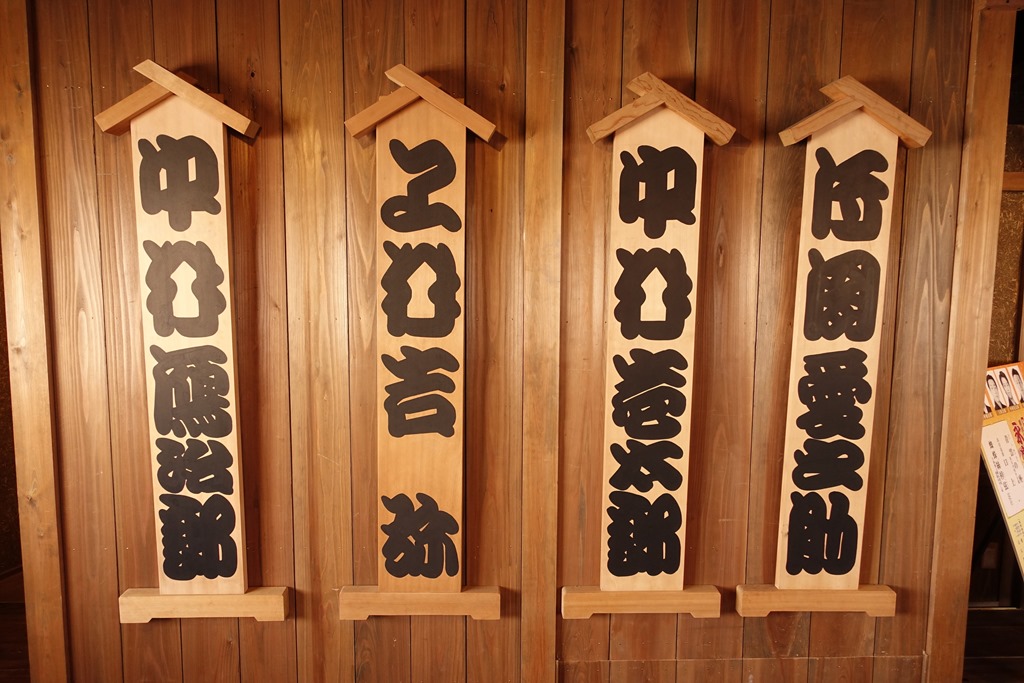 片岡愛之助
中村壱太郎
上村吉弥
中村鴈治郎